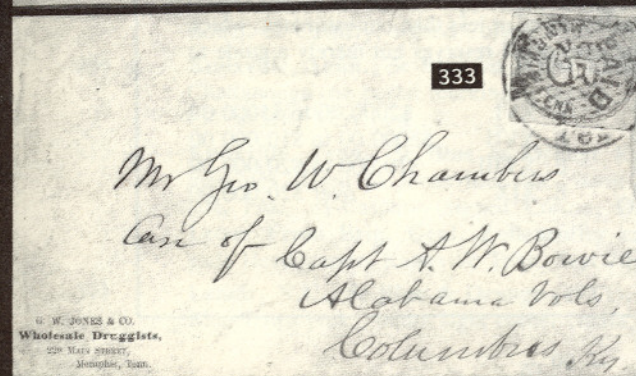 333
PAID
Mr Geo. W. Chambers
Care of Capt A. W. Bowie
Alabama Vols,
Columbus Ky
G. W. JONES & CO.
Wholesale Druggists,
229 MAIN STREET,
Memphis, Tenn.